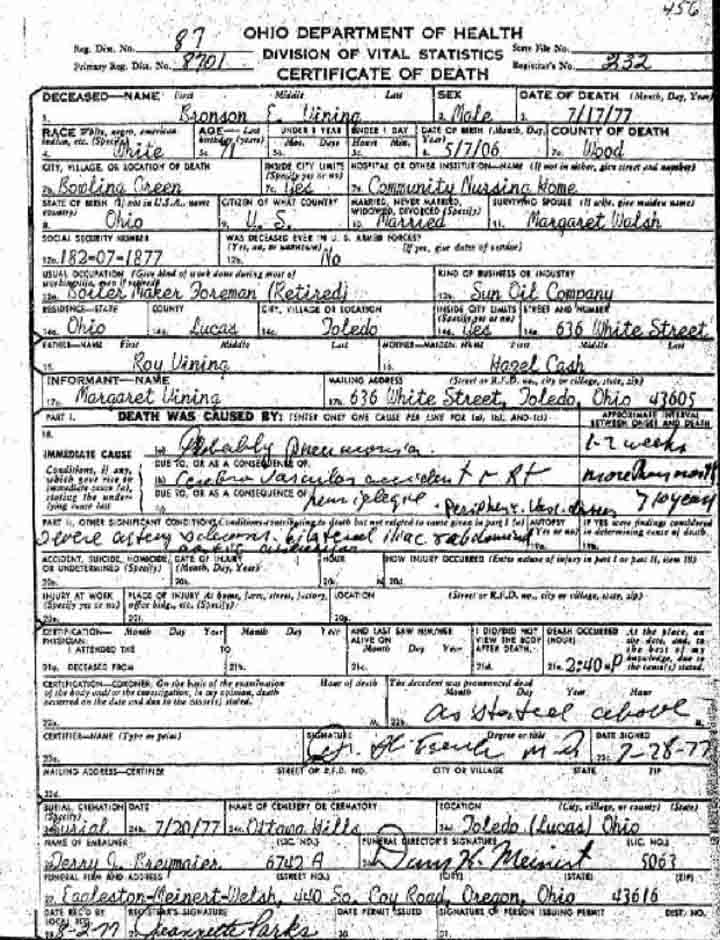 456
OHIO DEPARTMENT OF HEALTH
Reg. Dist. No. 87 DIVISION OF VITAL STATISTICS State File No.
Primary Reg. Dist. No. 8701 CERTIFICATE OF DEATH Registrar's No. 232
DECEASED—NAME First Middle Last SEX DATE OF DEATH (Month, Day, Year)
1. Bronson E. Vining 2. Male 3. 7/17/77
RACE White, negro, american indian, etc. (Specify) AGE—Last birthday (years) UNDER 1 YEAR UNDER 1 DAY DATE OF BIRTH (Month, Day, Year) COUNTY OF DEATH
4. White 5a. 71 Mos. Days Hours Min. 6. 5/7/06 7a. Wood
CITY, VILLAGE, OR LOCATION OF DEATH INSIDE CITY LIMITS (Specify yes or no) HOSPITAL OR OTHER INSTITUTION—NAME (If not in either, give street and number)
7b. Bowling Green 7c. Yes 7d. Community Nursing Home
STATE OF BIRTH (If not in U.S.A., name country) CITIZEN OF WHAT COUNTRY MARRIED, NEVER MARRIED, WIDOWED, DIVORCED (Specify) SURVIVING SPOUSE (If wife, give maiden name)
8. Ohio 9. U.S. 10. Married 11. Margaret Walsh
SOCIAL SECURITY NUMBER WAS DECEASED EVER IN U. S. ARMED FORCES?
(Yes, no, or unknown) (If yes, give dates of service)
12a. 182-07-1877 12b. No
USUAL OCCUPATION (Give kind of work done during most of working life, even if retired) KIND OF BUSINESS OR INDUSTRY
13a. Boiler Maker Foreman (Retired) 13b. Sun Oil Company
RESIDENCE—STATE COUNTY CITY, VILLAGE OR LOCATION INSIDE CITY LIMITS (Specify yes or no) STREET AND NUMBER
14a. Ohio Lucas Toledo 14d. Yes 636 White Street
FATHER—NAME First Middle Last MOTHER—MAIDEN NAME First Middle Last
15. Roy Vining 16. Hazel Cash
INFORMANT—NAME MAILING ADDRESS (Street or R.F.D. no., city or village, state, zip)
17a. Margaret Vining 17b. 636 White Street, Toledo, Ohio 43605
PART I. DEATH WAS CAUSED BY: [ENTER ONLY ONE CAUSE PER LINE FOR (a), (b), AND (c)] APPROXIMATE INTERVAL BETWEEN ONSET AND DEATH
18.
IMMEDIATE CAUSE (a) Probably pneumonia 1-2 weeks
Conditions, if any, which gave rise to immediate cause (a), stating the underlying cause last
DUE TO, OR AS A CONSEQUENCE OF:
(b) Cerebro vascular accident RT more than month
DUE TO, OR AS A CONSEQUENCE OF:
(c) hemiplegia
PART II. OTHER SIGNIFICANT CONDITIONS: Conditions contributing to death but not related to cause given in part I (a) AUTOPSY (Yes or no) IF YES were findings considered in determining cause of death.
Severe artery bilateral iliac
19a. 19b.
ACCIDENT, SUICIDE, HOMICIDE, OR UNDETERMINED (Specify) DATE OF INJURY (Month, Day, Year) HOUR HOW INJURY OCCURRED (Enter nature of injury in part I or part II, item 18)
20a. 20b. 20c. M 20d.
INJURY AT WORK (Specify yes or no) PLACE OF INJURY At home, farm, street, factory, office bldg., etc. (Specify) LOCATION (Street or R.F.D. no., city or village, state, zip)
20e. 20f. 20g.
CERTIFICATION—PHYSICIAN: Month Day Year Month Day Year AND LAST SAW HIM/HER ALIVE ON Month Day Year I DID/DID NOT VIEW THE BODY AFTER DEATH. DEATH OCCURRED (HOUR) At the place, on the date, and, to the best of my knowledge, due to the cause(s) stated.
I ATTENDED THE TO
21a. DECEASED FROM 21b. 21c. 21d. 21e. 2:40 P
CERTIFICATION—CORONER: On the basis of the examination of the body and/or the investigation, in my opinion, death occurred on the date and due to the cause(s) stated. Hour of death The decedent was pronounced dead
Month Day Year Hour
22a. M. 22b. as stated above M.
CERTIFIER—NAME (Type or print) SIGNATURE Degree or title DATE SIGNED
23a. M.D. 23c. 7-28-77
MAILING ADDRESS—CERTIFIER STREET OR R.F.D. NO. CITY OR VILLAGE STATE ZIP
23d.
BURIAL, CREMATION (Specify) DATE NAME OF CEMETERY OR CREMATORY LOCATION (City, village, or county) (State)
Burial 24b. 7/20/77 24c. Ottawa Hills 24d. Toledo (Lucas) Ohio
NAME OF EMBALMER (LIC. NO.) FUNERAL DIRECTOR'S SIGNATURE (LIC. NO.)
Jerry J. Breymaier 6742 A Meinert 5063
FUNERAL FIRM AND ADDRESS (STREET NO.) (CITY) (STATE) (ZIP)
27. Eggleston-Meinert-Welsh, 440 So. Coy Road, Oregon, Ohio 43616
DATE REC'D BY LOCAL REG. REGISTRAR'S SIGNATURE DATE PERMIT ISSUED SIGNATURE OF PERSON ISSUING PERMIT DIST. NO.
8-2-77 Jeannette Parks 30. 31.